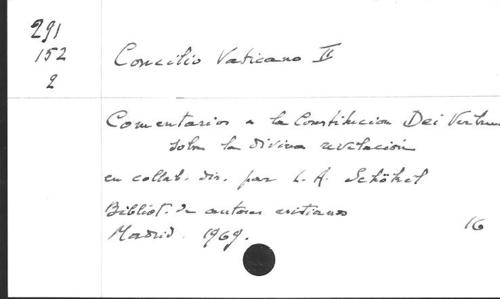 291
152
2
Concilio Vaticano II
Comentarios a la Constitucion Dei Verbum
sobre la divina revelación
en collab. dir. par L. A. Schökel
Bibliot. de autores cristianos
Madrid. 1969.
16